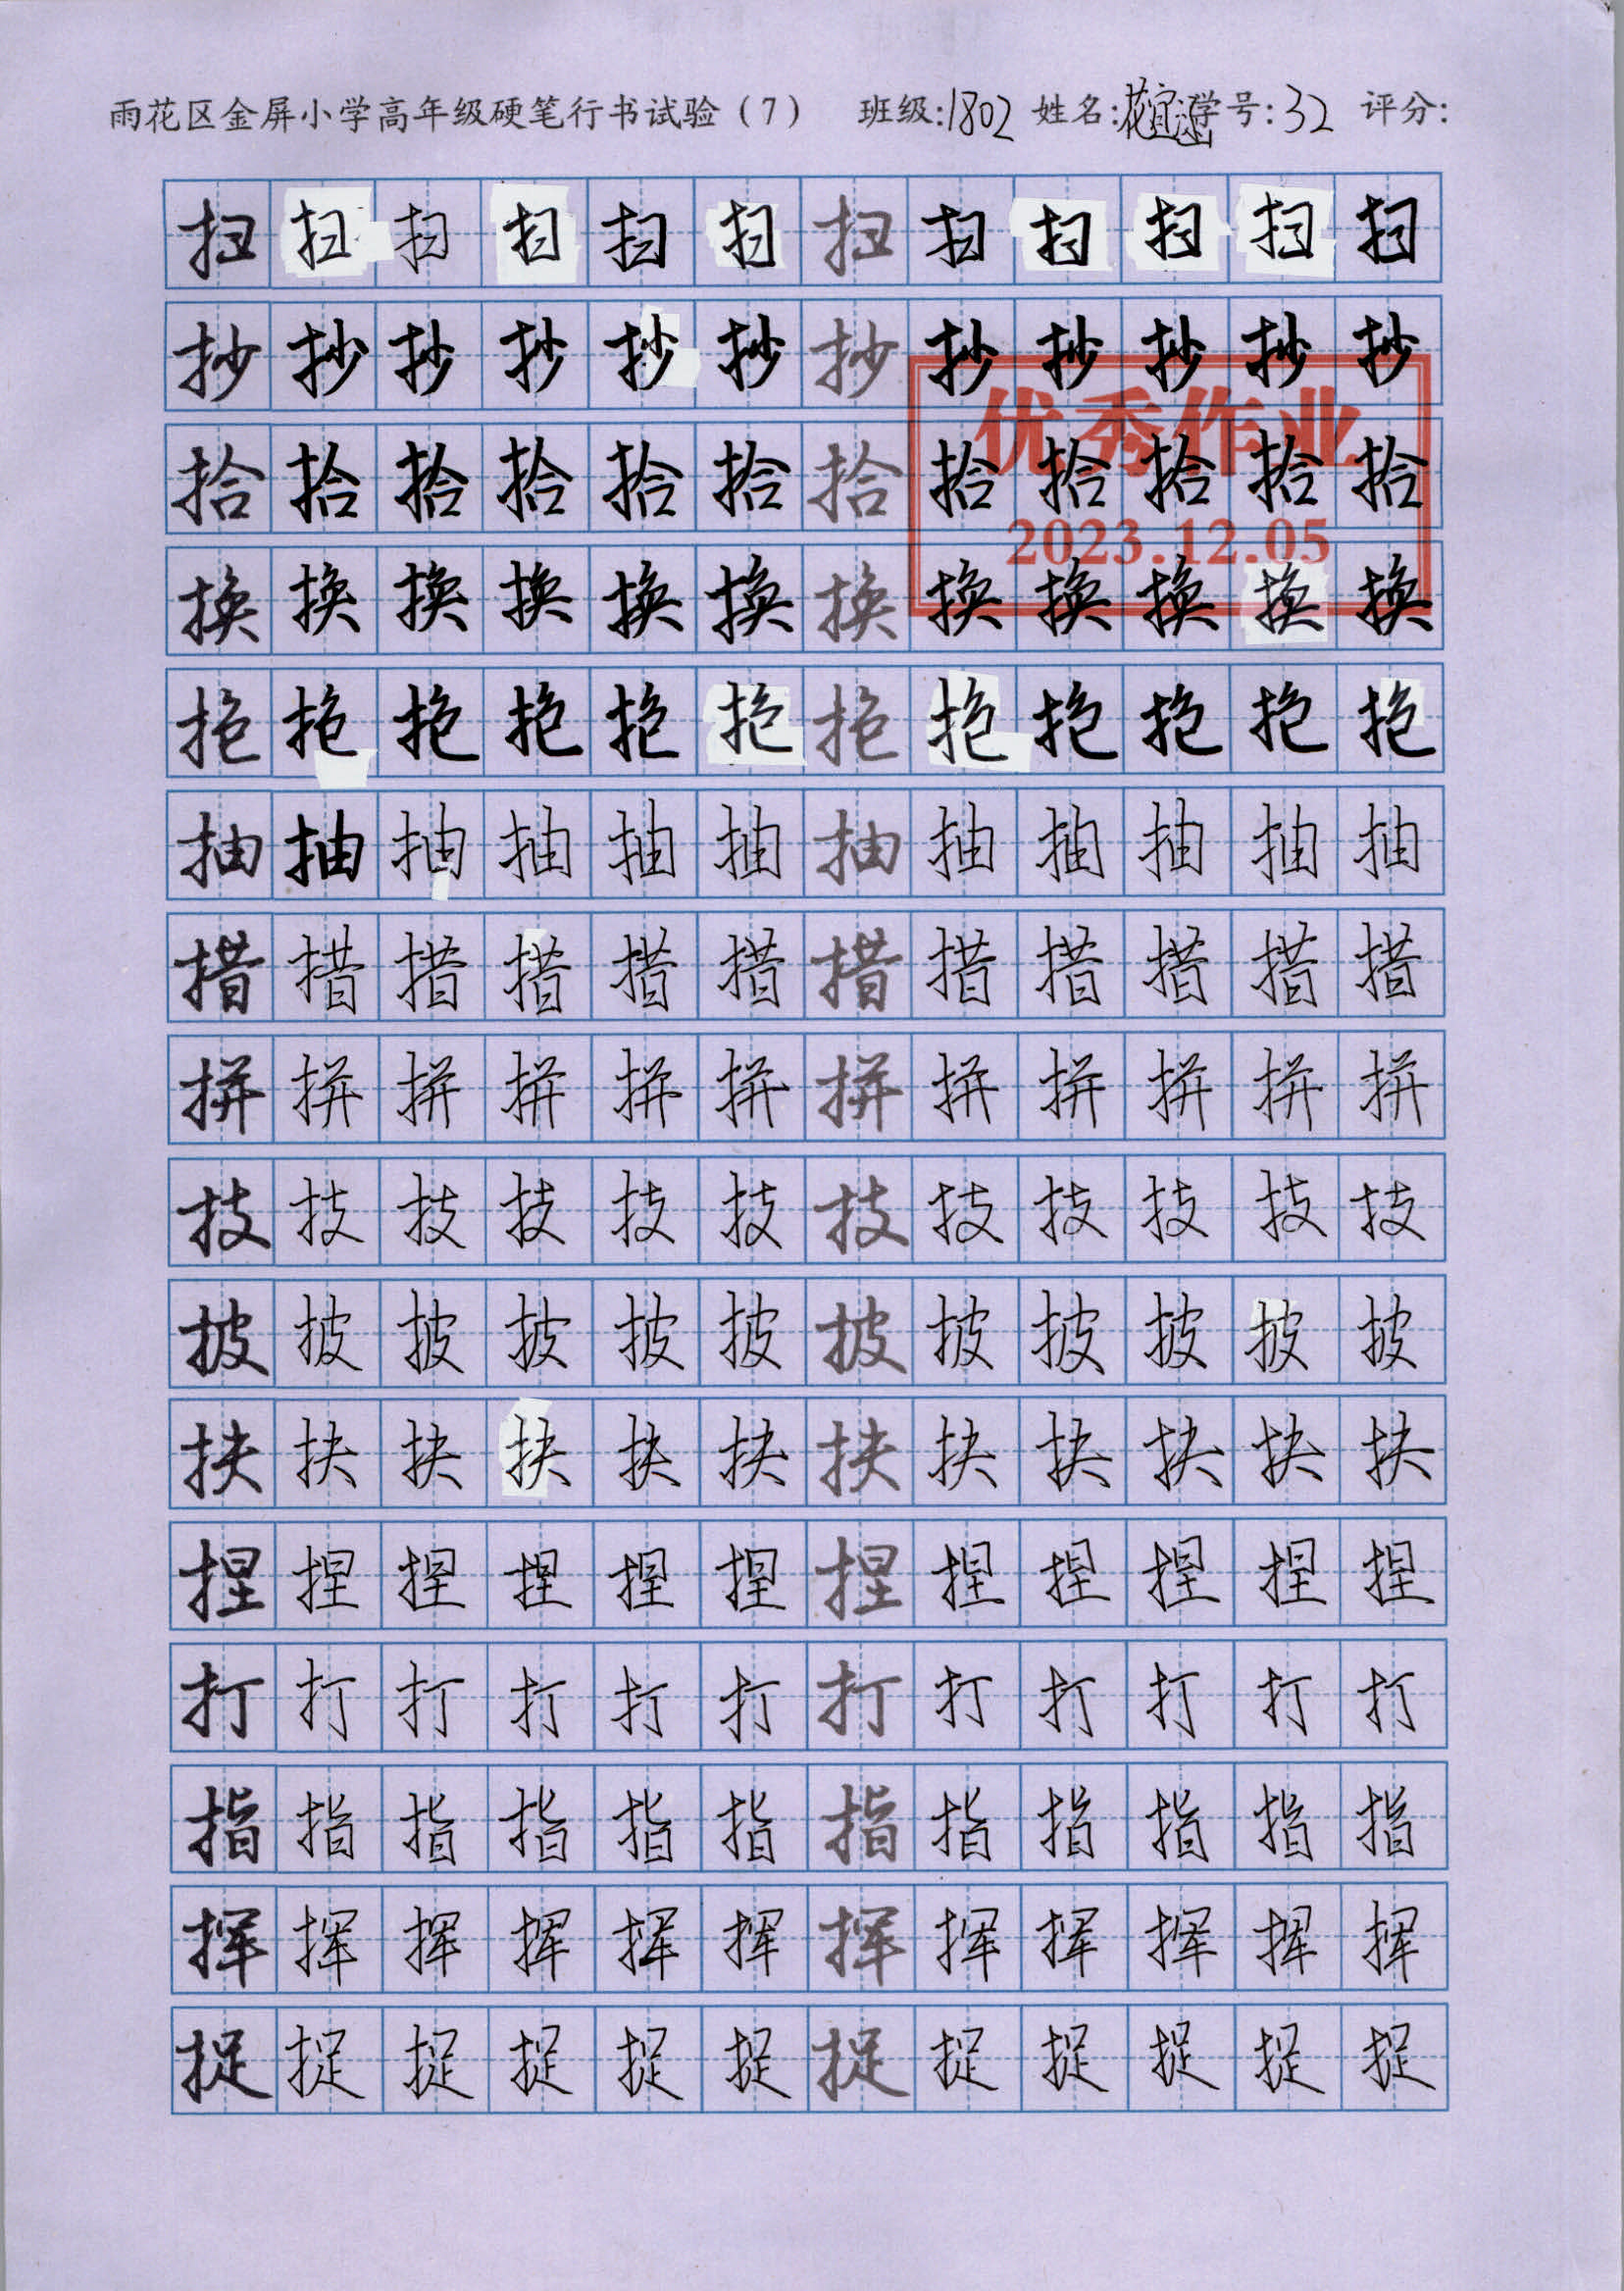 雨花区金屏小学高年级硬笔行书试验（7） 班级:1802 姓名:花宜涵 学号:32 评分:
扫扫扫扫扫扫扫扫扫扫扫扫
抄抄抄抄抄抄抄抄抄抄抄抄
优秀作业
拾拾拾拾拾拾拾拾拾拾拾拾
2023.12.05
换换换换换换换换换换换换
抱抱抱抱抱抱抱抱抱抱抱抱
抽抽抽抽抽抽抽抽抽抽抽抽
措措措措措措措措措措措措
拼拼拼拼拼拼拼拼拼拼拼拼
技技技技技技技技技技技技
披披披披披披披披披披披披
扶扶扶扶扶扶扶扶扶扶扶扶
捏捏捏捏捏捏捏捏捏捏捏捏
打打打打打打打打打打打打
指指指指指指指指指指指指
挥挥挥挥挥挥挥挥挥挥挥挥
捉捉捉捉捉捉捉捉捉捉捉捉